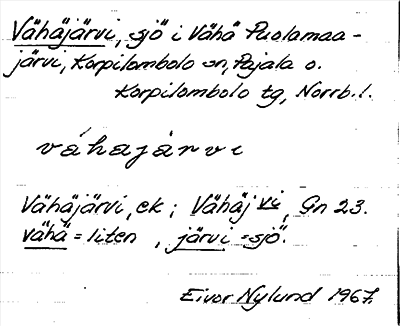 Vähäjärvi, sjö i Vähä Puolamaa-
järvi, Korpilombolo sn, Pajala o.
Korpilombolo tg, Norrb.l.
váhajärvi
Vähäjärvi, ek; Vähäj vi, Gn 23.
vähä = liten, järvi = sjö.
Eivor Nylund 1967.